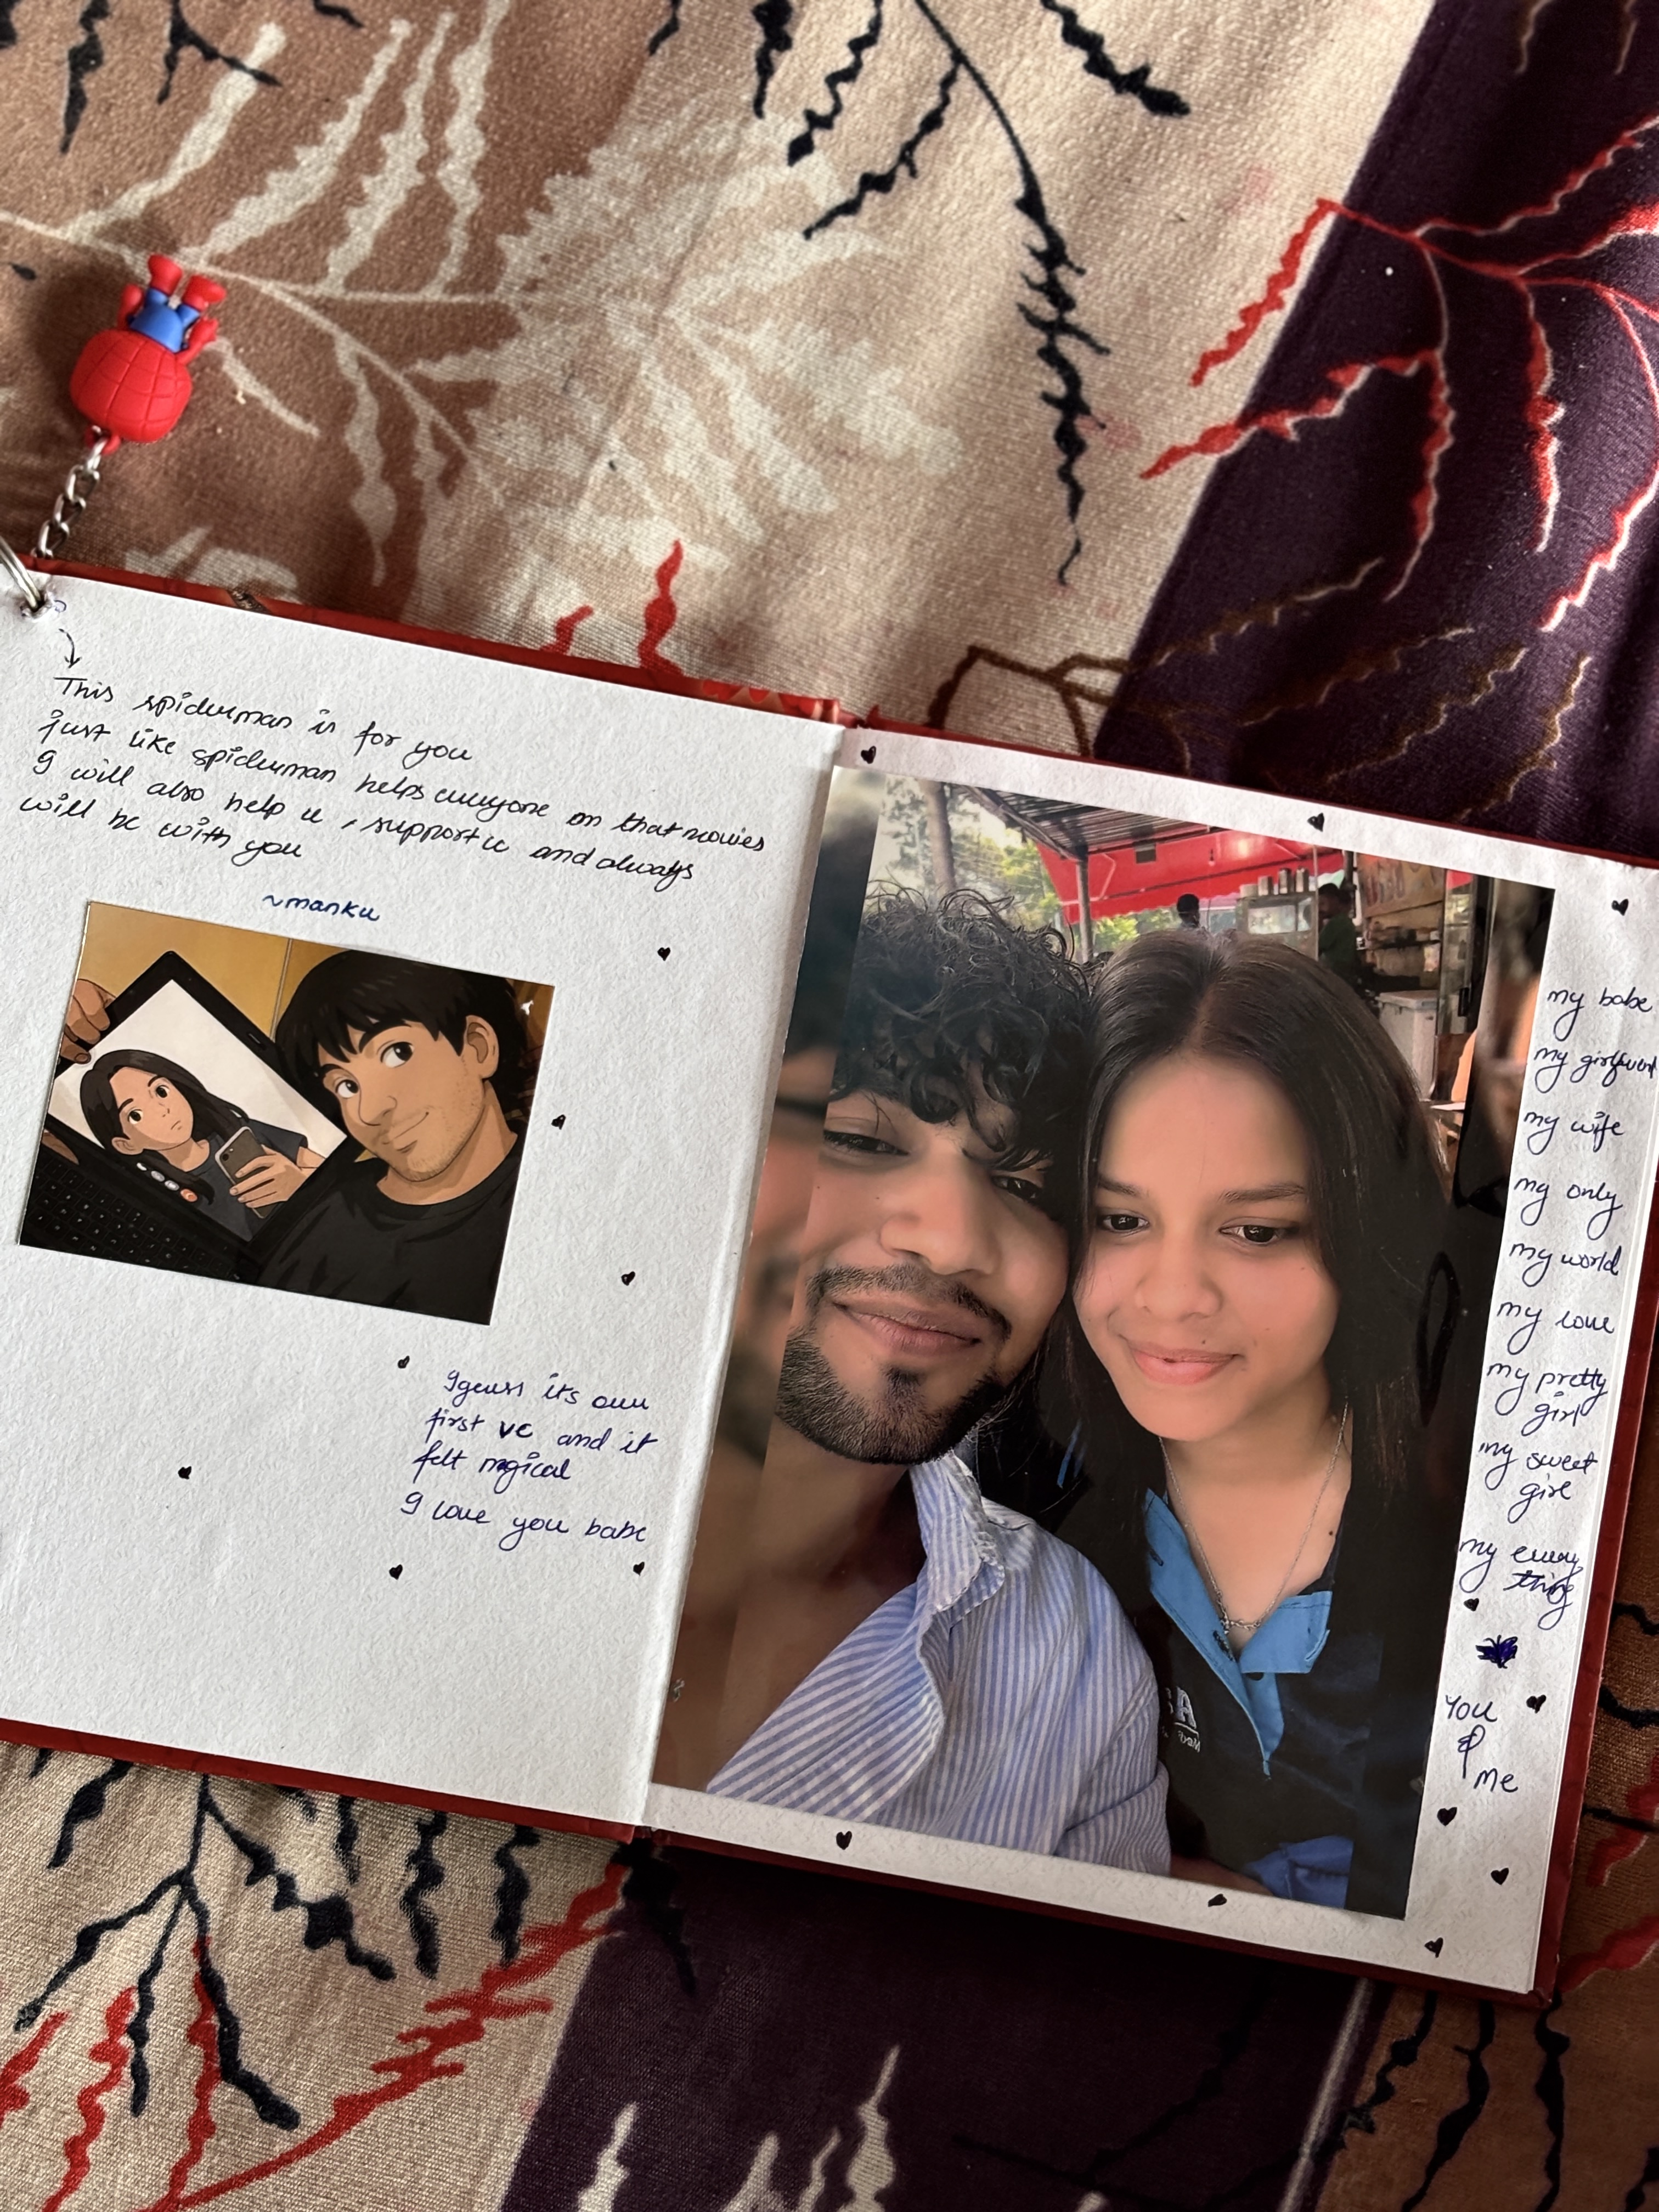 This spiderman is for you
just like spiderman helps everyone on that movies
I will also help u, support u and always
will be with you
~manku
I guess it's our
first vc and it
felt mgical
I love you babe
my babe
my girlfriend
my wife
my only
my world
my love
my pretty
girl
my sweet
girl
my every
thing
You
&
Me